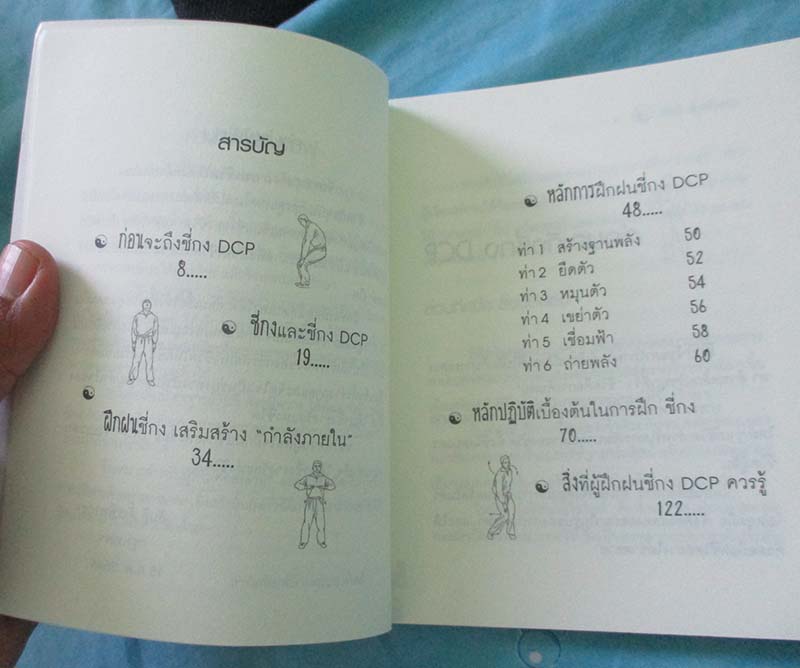 สารบัญ
ก่อนจะถึงชี่กง DCP
8.....
ชี่กงและชี่กง DCP
19.....
ฝึกฝนชี่กง เสริมสร้าง “กำลังภายใน”
34.....
หลักการฝึกฝนชี่กง DCP
48.....
ท่า 1 สร้างฐานพลัง 50
ท่า 2 ยืดตัว 52
ท่า 3 หมุนตัว 54
ท่า 4 เขย่าตัว 56
ท่า 5 เชื่อมฟ้า 58
ท่า 6 ถ่ายพลัง 60
หลักปฏิบัติเบื้องต้นในการฝึก ชี่กง
70.....
สิ่งที่ผู้ฝึกฝนชี่กง DCP ควรรู้
122.....